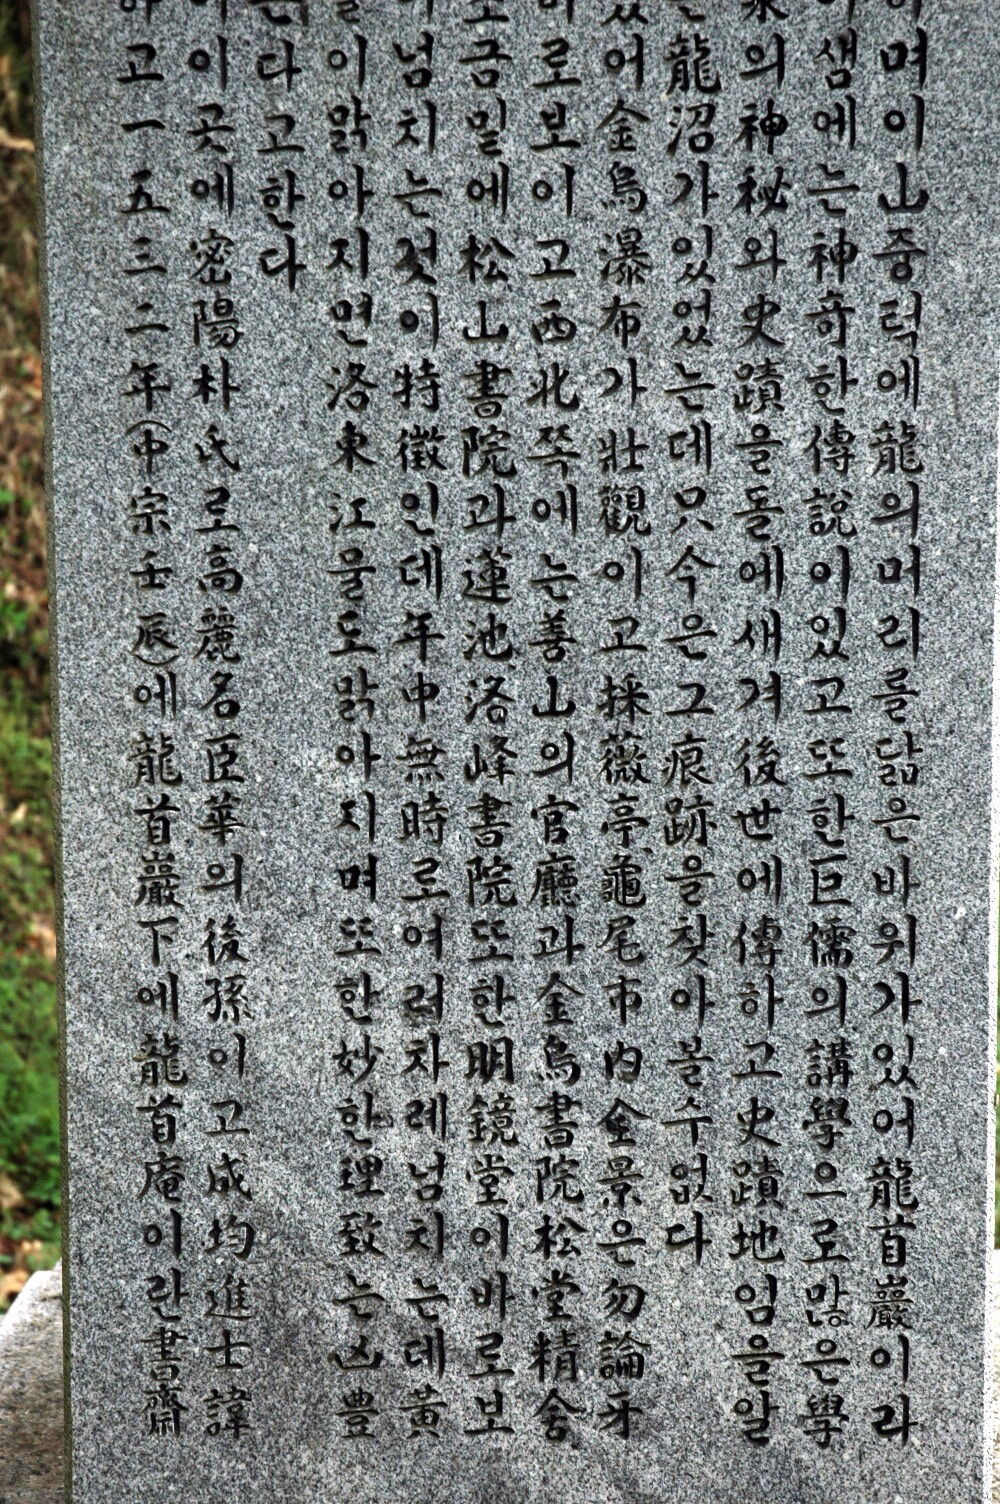 며이山중턱에龍의머리를닮은바위가있어龍首巖이라
샘에는神奇한傳說이있고또한巨儒의講學으로많은學
의神秘와史蹟을돌에새겨後世에傳하고史蹟地임을알
龍沼가있었는데只今은그痕跡을찾아볼수없다
있어金烏瀑布가壯觀이고採薇亭龜尾市內全景은勿論牙
로보이고西北쪽에는善山의官廳과金烏書院松堂精舍
금밑에松山書院과蓮池洛峰書院또한明鏡堂이바로보
넘치는것이特徵인데年中無時로여러차례넘치는데黃
이맑아지면洛東江물도맑아지며또한妙한理致는凶豊
다고한다
이곳에密陽朴氏로高麗名臣華의後孫이고成均進士諱
고一五三二年(中宗壬辰)에龍首巖下에龍首庵이란書齋